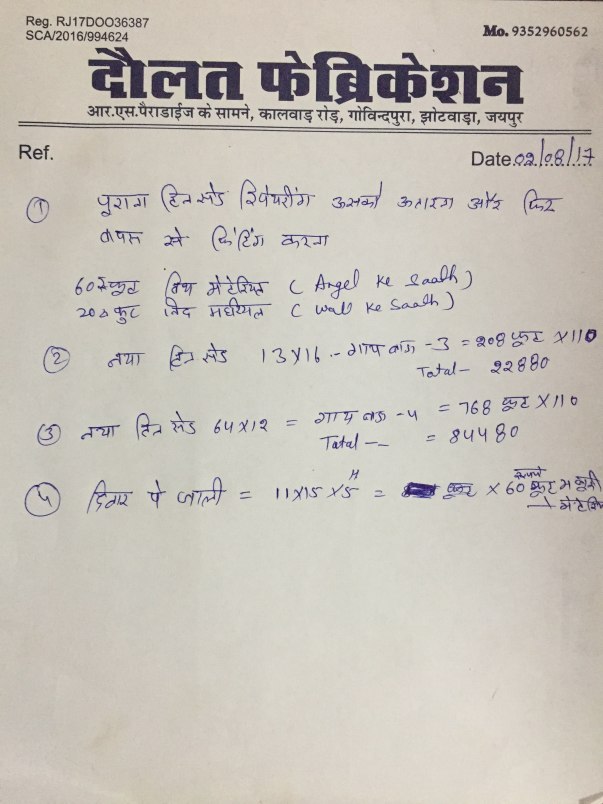 Reg. RJ17DOO36387
SCA/2016/994624
Mo. 9352960562
दौलत फेब्रिकेशन
आर.एस.पैराडाईज के सामने, कालवाड़ रोड़, गोविन्दपुरा, झोटवाड़ा, जयपुर
Ref.
Date 02/08/17
① पुराना टिनसेड रिपेयरींग उसको उतारना और फिर
वापस से फिटिंग करना
60 रु फूट विथ मेटेरियल ( Angel Ke Saath )
20 रु फुट विद मटेरियल ( Wall Ke Saath )
② नया टिन सेड 13X16 - गाय बाड़ा - 3 = 208 फूट X 110
Total - 22880
③ नया टिन सेड 64X12 = गाय बाड़ा - 4 = 768 फूट X 110
Total - = 84480
④ दिवार पे जाली = 11X15 X 5 H = फूट X 60 रूपये फूट